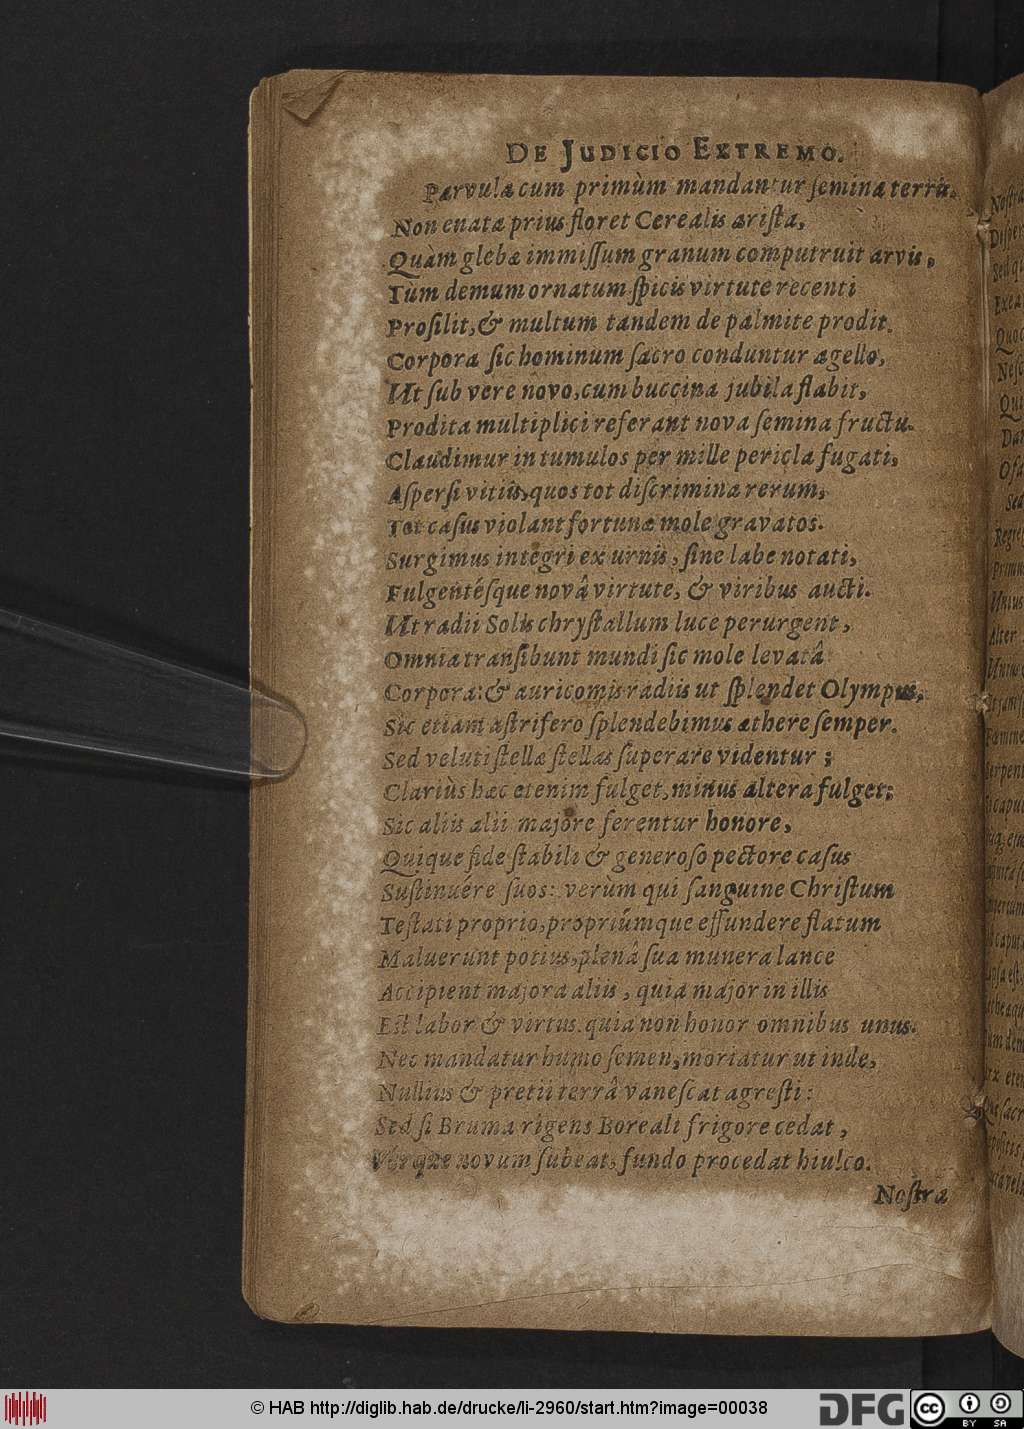 DE JUDICIO EXTREMO.
Parvula cum primùm mandantur ſemina terræ.
Non enata prius floret Cerealis ariſta,
Quàm glebæ immiſſum granum computruit arvis,
Tùm demum ornatum ſpicis virtute recenti
Proſilit, & multum tandem de palmite prodit.
Corpora ſic hominum ſacro conduntur agello,
Ut ſub vere novo, cum buccina jubila flabit,
Prodita multiplici referant nova ſemina fructu.
Claudimur in tumulos per mille pericla fugati,
Aſperſi vitiis, quos tot diſcrimina rerum,
Tot caſus violant fortunæ mole gravatos.
Surgimus integri ex urnis, ſine labe notati,
Fulgentéſque novâ virtute, & viribus aucti.
Ut radii Solis chryſtallum luce perurgent,
Omnia tranſibunt mundi ſic mole levatâ
Corpora: & auricomis radiis ut ſplendet Olympus,
Sic etiam aſtrifero ſplendebimus æthere ſemper.
Sed veluti ſtellæ ſtellas ſuperare videntur;
Clariùs hæc etenim fulget, minus altera fulget:
Sic aliis alii majore ferentur honore,
Quique fide ſtabili & generoſo pectore caſus
Suſtinuére ſuos: verùm qui ſanguine Chriſtum
Teſtati proprio, propriúmque effundere flatum
Maluerunt potius, plenâ ſua munera lance
Accipient majora aliis, quia major in illis
Eſt labor & virtus. quia non honor omnibus unus.
Nec mandatur humo ſemen, moriatur ut inde,
Nullius & pretii terrâ vaneſcat agreſti:
Sed ſi Bruma rigens Boreali frigore cedat,
Verque novum ſubeat, fundo procedat hiulco.
Noſtra
© HAB http://diglib.hab.de/drucke/li-2960/start.htm?image=00038
DFG
cc
BY SA